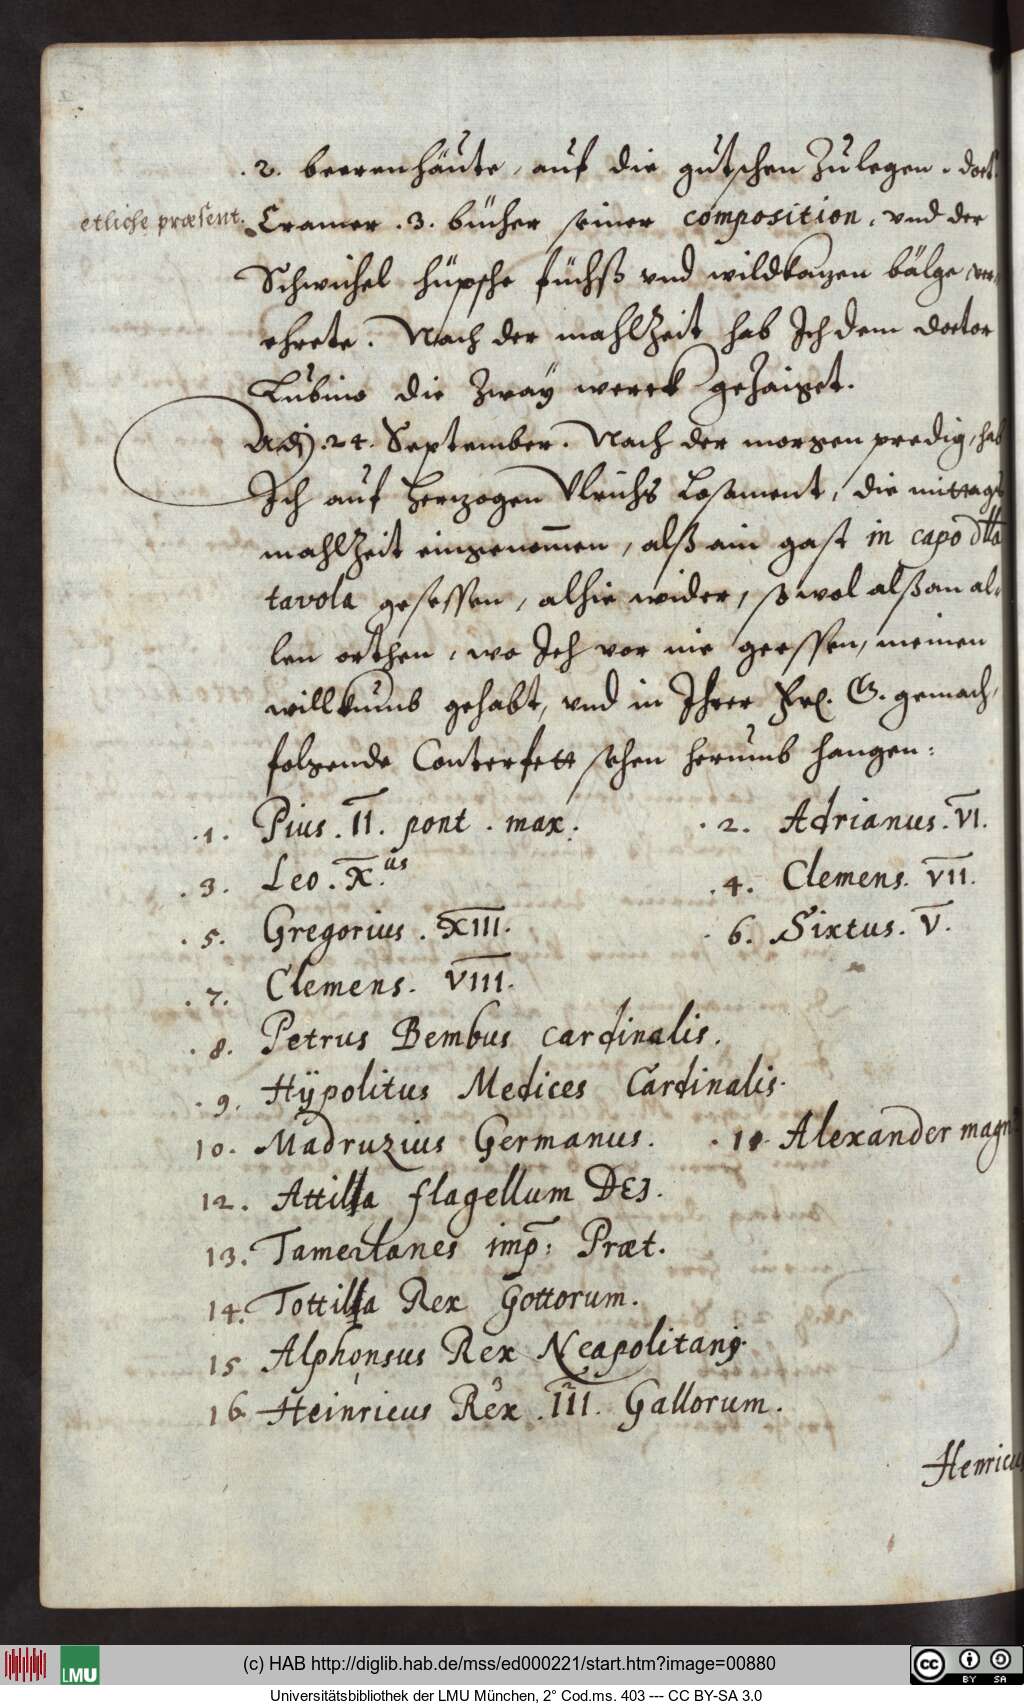 .2. beerenhäute, auf die gutschen Zulegen. doct:
etliche præsent.
Cramer .3. bücher seiner composition, vnd der
Schwichel hüpsche füchß vnd wildkazen bälge ver-
ehrete. Nach der mahlZeit hab Ich dem doctor
Lubino die Zway werck geZaiget.
Adj .24. September. Nach der morgen predig, hab
Ich auf Herzogen Vlrichs Losament, die mittags
mahlZeit eingenommen, alß ain gast in capo dlla
tavola gesessen, alhie wider, so wol alß an al-
len orthen, wo Ich vor nie geessen, meinen
willkumb gehabt, vnd in Ihrer G. gemach,
folgende Conterfett sehen herumb hangen:
.1. Pius. II. pont. max. .2. Adrianus. VI.
.3. Leo. X.us .4. Clemens. VII.
.5. Gregorius. XIII. .6. Sixtus. V.
.7. Clemens. VIII.
.8. Petrus Bembus cardinalis.
.9. Hÿpolitus Medices Cardinalis.
10. Madruzius Germanus. .11. Alexander magn
12. Attilla flagellum DEJ.
13. Tamerlanes imp: Præt.
14. Tottilla Rex Gottorum.
15 Alphonsus Rex Neapolitanq.
16 Heinricus Rex .III. Gallorum.
Henricus
(c) HAB http://diglib.hab.de/mss/ed000221/start.htm?image=00880
LMU
cc BY SA
Universitätsbibliothek der LMU München, 2° Cod.ms. 403 --- CC BY-SA 3.0